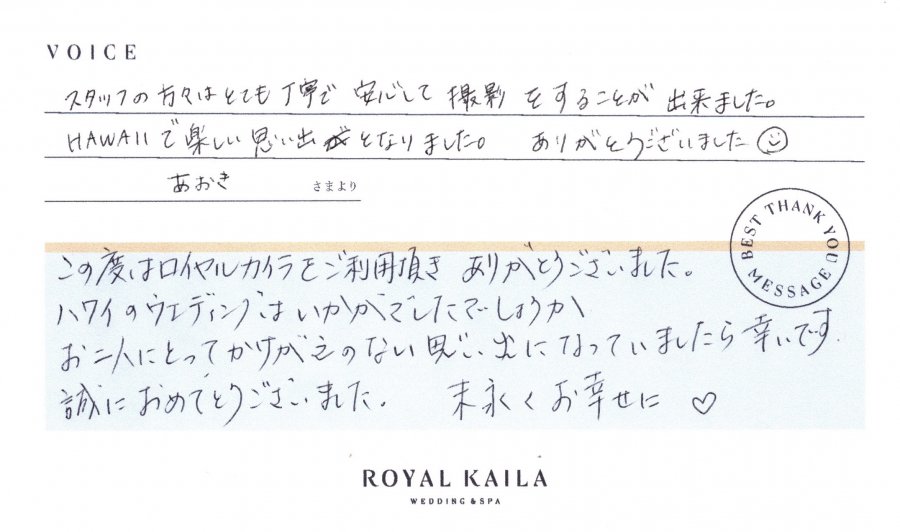 VOICE
スタッフの方々はとても丁寧で 安心して 撮影 をすることが 出来ました。
HAWAIIで楽しい思い出がとなりました。 ありがとうございました
あおき さまより
BEST THANK YOU MESSAGE
この度はロイヤルカイラをご利用頂き ありがとうございました。
ハワイのウエディングはいかがでしたでしょうか
お二人にとってかけがえのない思い出になっていましたら幸いです
誠におめでとうございました。 末永くお幸せに ♡
ROYAL KAILA
WEDDING & SPA